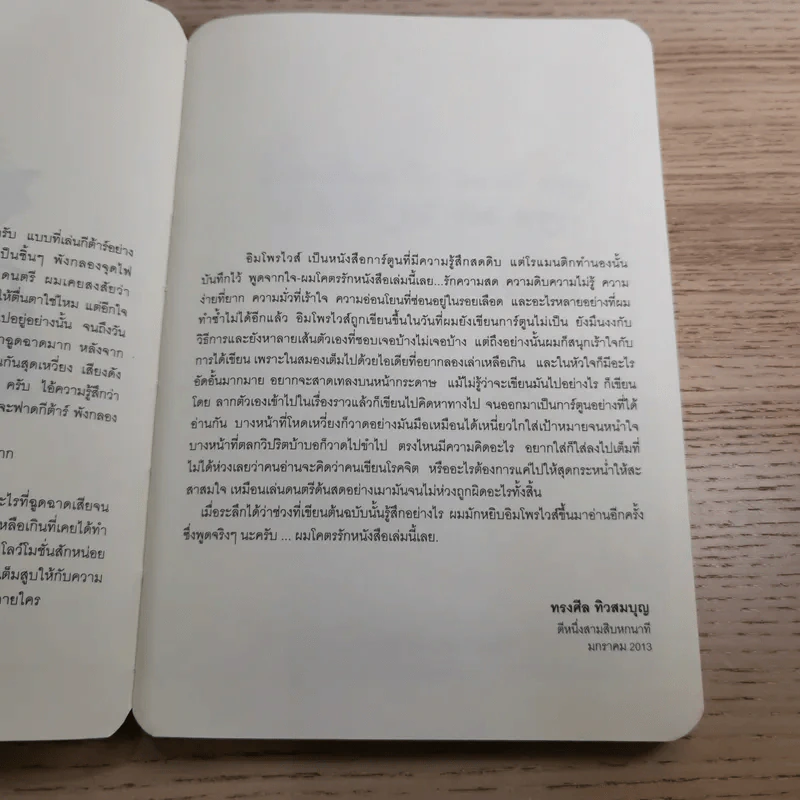 รับ แบบที่เล่นกีต้าร์อย่าง
เป็นชิ้นๆ พังกลองจุดไฟ
ดนตรี ผมเคยสงสัยว่า
ให้ตื่นตาใช่ไหม แต่อีกใจ
ปอยู่อย่างนั้น จนถึงวัน
าฉูดฉาดมาก หลังจาก
นกันสุดเหวี่ยง เสียงดัง
ครับ ไอ้ความรู้สึกว่า
จะฟาดกีต้าร์ พังกลอง
าก
ะไรที่ฉูดฉาดเสียจน
หลือเกินที่เคยได้ทำ
โลว์โมชั่นสักหน่อย
เต็มสูบให้กับความ
ายใคร
อิมโพรไวส์ เป็นหนังสือการ์ตูนที่มีความรู้สึกสดดิบ แต่โรแมนติกทำนองนั้น
บันทึกไว้ พูดจากใจ-ผมโคตรรักหนังสือเล่มนี้เลย...รักความสด ความดิบความไม่รู้ ความ
ง่ายที่ยาก ความมั่วที่เร้าใจ ความอ่อนโยนที่ซ่อนอยู่ในรอยเลือด และอะไรหลายอย่างที่ผม
ทำซ้ำไม่ได้อีกแล้ว อิมโพรไวส์ถูกเขียนขึ้นในวันที่ผมยังเขียนการ์ตูนไม่เป็น ยังมึนงงกับ
วิธีการและยังหาลายเส้นตัวเองที่ชอบเจอบ้างไม่เจอบ้าง แต่ถึงอย่างนั้นผมก็สนุกเร้าใจกับ
การได้เขียน เพราะในสมองเต็มไปด้วยไอเดียที่อยากลองเล่าเหลือเกิน และในหัวใจก็มีอะไร
อัดอั้นมากมาย อยากจะสาดเทลงบนหน้ากระดาษ แม้ไม่รู้ว่าจะเขียนมันไปอย่างไร ก็เขียน
โดย ลากตัวเองเข้าไปในเรื่องราวแล้วก็เขียนไปคิดหาทางไป จนออกมาเป็นการ์ตูนอย่างที่ได้
อ่านกัน บางหน้าที่โหดเหวี่ยงก็วาดอย่างมันมือเหมือนได้เหนี่ยวไกใส่เป้าหมายจนหนำใจ
บางหน้าที่ตลกวิปริตบ้าบอก็วาดไปขำไป ตรงไหนมีความคิดอะไร อยากใส่ก็ใส่ลงไปเต็มที่
ไม่ได้ห่วงเลยว่าคนอ่านจะคิดว่าคนเขียนโรคจิต หรืออะไรต้องการแค่ไปให้สุดกระหน่ำให้สะ
สาสมใจ เหมือนเล่นดนตรีด้นสดอย่างเมามันจนไม่ห่วงถูกผิดอะไรทั้งสิ้น
เมื่อระลึกได้ว่าช่วงที่เขียนต้นฉบับนั้นรู้สึกอย่างไร ผมมักหยิบอิมโพรไวส์ขึ้นมาอ่านอีกครั้ง
ซึ่งพูดจริงๆ นะครับ ... ผมโคตรรักหนังสือเล่มนี้เลย.
ทรงศีล ทิวสมบุญ
ตีหนึ่งสามสิบหกนาที
มกราคม 2013